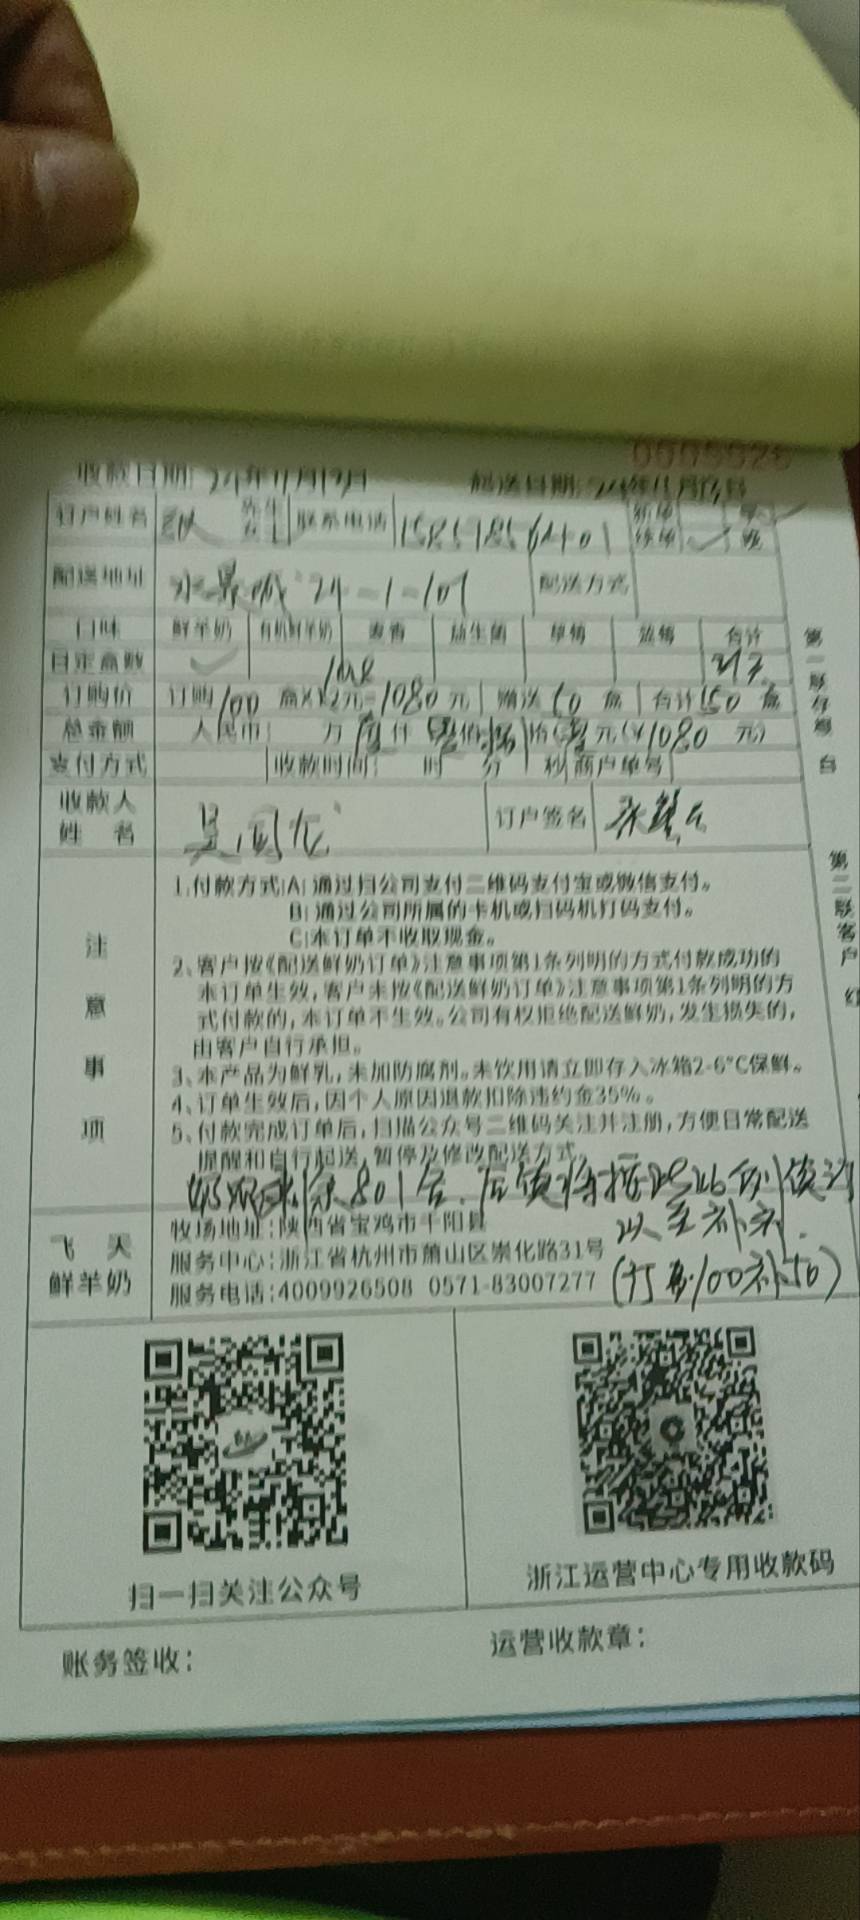 0005526
收款日期: 24年11月13日 起送日期: 24年11月13日
订户姓名 先生 女士 联系电话 15857856401 新单 早
续单 ✓ 晚
配送地址 水景城 24-1-107 配送方式
口味 鲜羊奶 有机鲜羊奶 麦香 益生菌 草莓 蓝莓 合计
日定盒数 ✓
订购价 订购100盒×12元=1080元 赠送50盒 合计150盒
总金额 人民币: 万 仟 佰 拾 元(¥1080元)
支付方式 收款时间: 时 分 秒 商户单号
收款人姓名 订户签名
注意事项
1.付款方式:A:通过扫公司支付二维码支付宝或微信支付。
B:通过公司所属的卡机或扫码机打码支付。
C:本订单不收取现金。
2、客户按《配送鲜奶订单》注意事项第1条列明的方式付款成功的
本订单生效,客户未按《配送鲜奶订单》注意事项第1条列明的方
式付款的,本订单不生效。公司有权拒绝配送鲜奶,发生损失的,
由客户自行承担。
3、本产品为鲜乳,未加防腐剂。未饮用请立即存入冰箱2-6°C保鲜。
4、订单生效后,因个人原因退款扣除违约金35%。
5、付款完成订单后,扫描公众号二维码关注并注册,方便日常配送
提醒和自行起送,暂停及修改配送方式。
以至补充.
(订购100补50)
飞天
鲜羊奶
牧场地址:陕西省宝鸡市千阳县
服务中心:浙江省杭州市萧山区崇化路31号
服务电话:4009926508 0571-83007277
扫一扫关注公众号
浙江运营中心专用收款码
账务签收:
运营收款章:
第一联存根 白
第二联客户 红